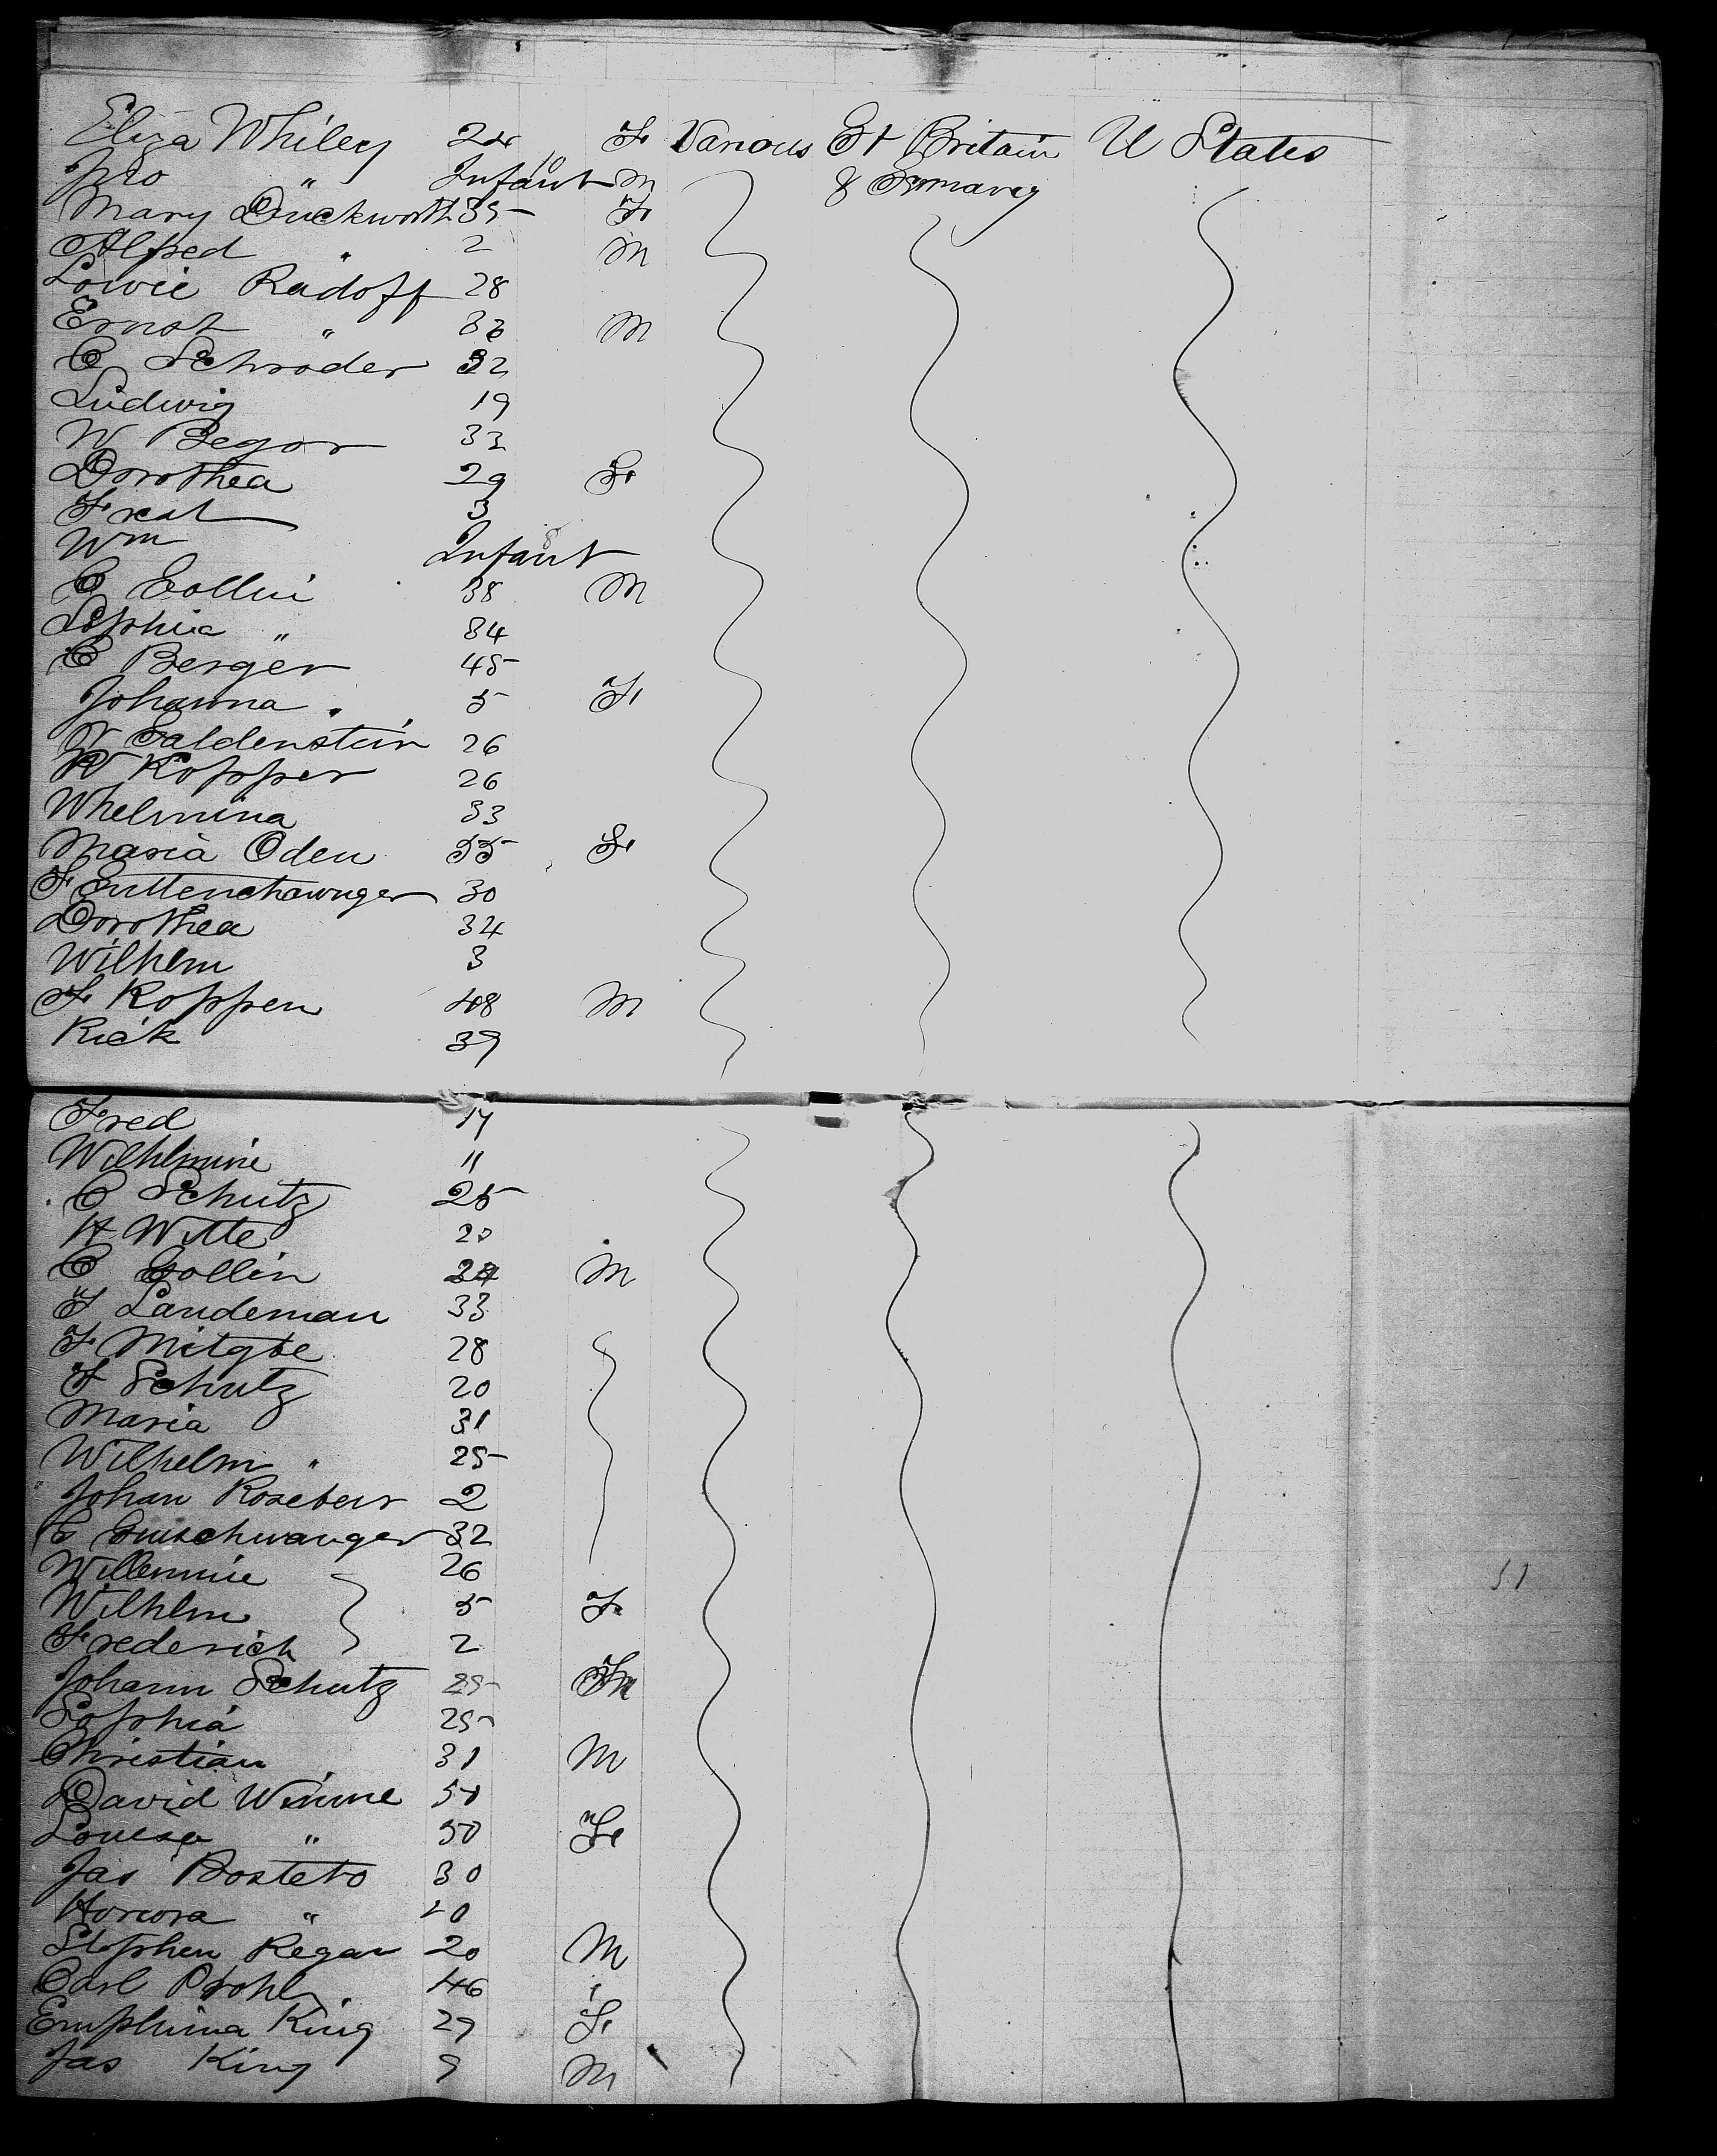 Eliza Whiley 24 F Various Gt Britain U States
Jno " Infant 10 M & Germany
Mary Duckworth 35 F
Alfred " 2 M
Lowie Radoff 28
Ernst " 36 M
C Schroder 32
Ludwig 19
W Begor 33
Dorothea 29 F
3
Wm Infant 8
C Collin 38 M
Sophia " 34
C Berger 45
Johanna " 5 F
Galdenstein 26
W Kopper 26
Whelmina 33
Maria Oden 55 F
F 30
Dorothea 34
Wilhlm 3
F Koppen 48 M
Rick 39
Fred 17
Wilhlmine 11
C Schutz 25
H Witte 20
C Gollin 24 M
F Landeman 33
F Mitgbe 28
F Schutz 20
Maria 31
Wilhelm " 25
Johan 2
32
Willemine 26
Wilhlm 5 F
Frederich 2
Johann Schutz 25
Sophia 25
Christian 31 M
David Winne 51
Louisa " 50 F
Jas Bosteto 30
Honora " 20
Stephen Regan 20 M
Carl Prohl 46
Emphima King 29 F
Jas King 9 M
51